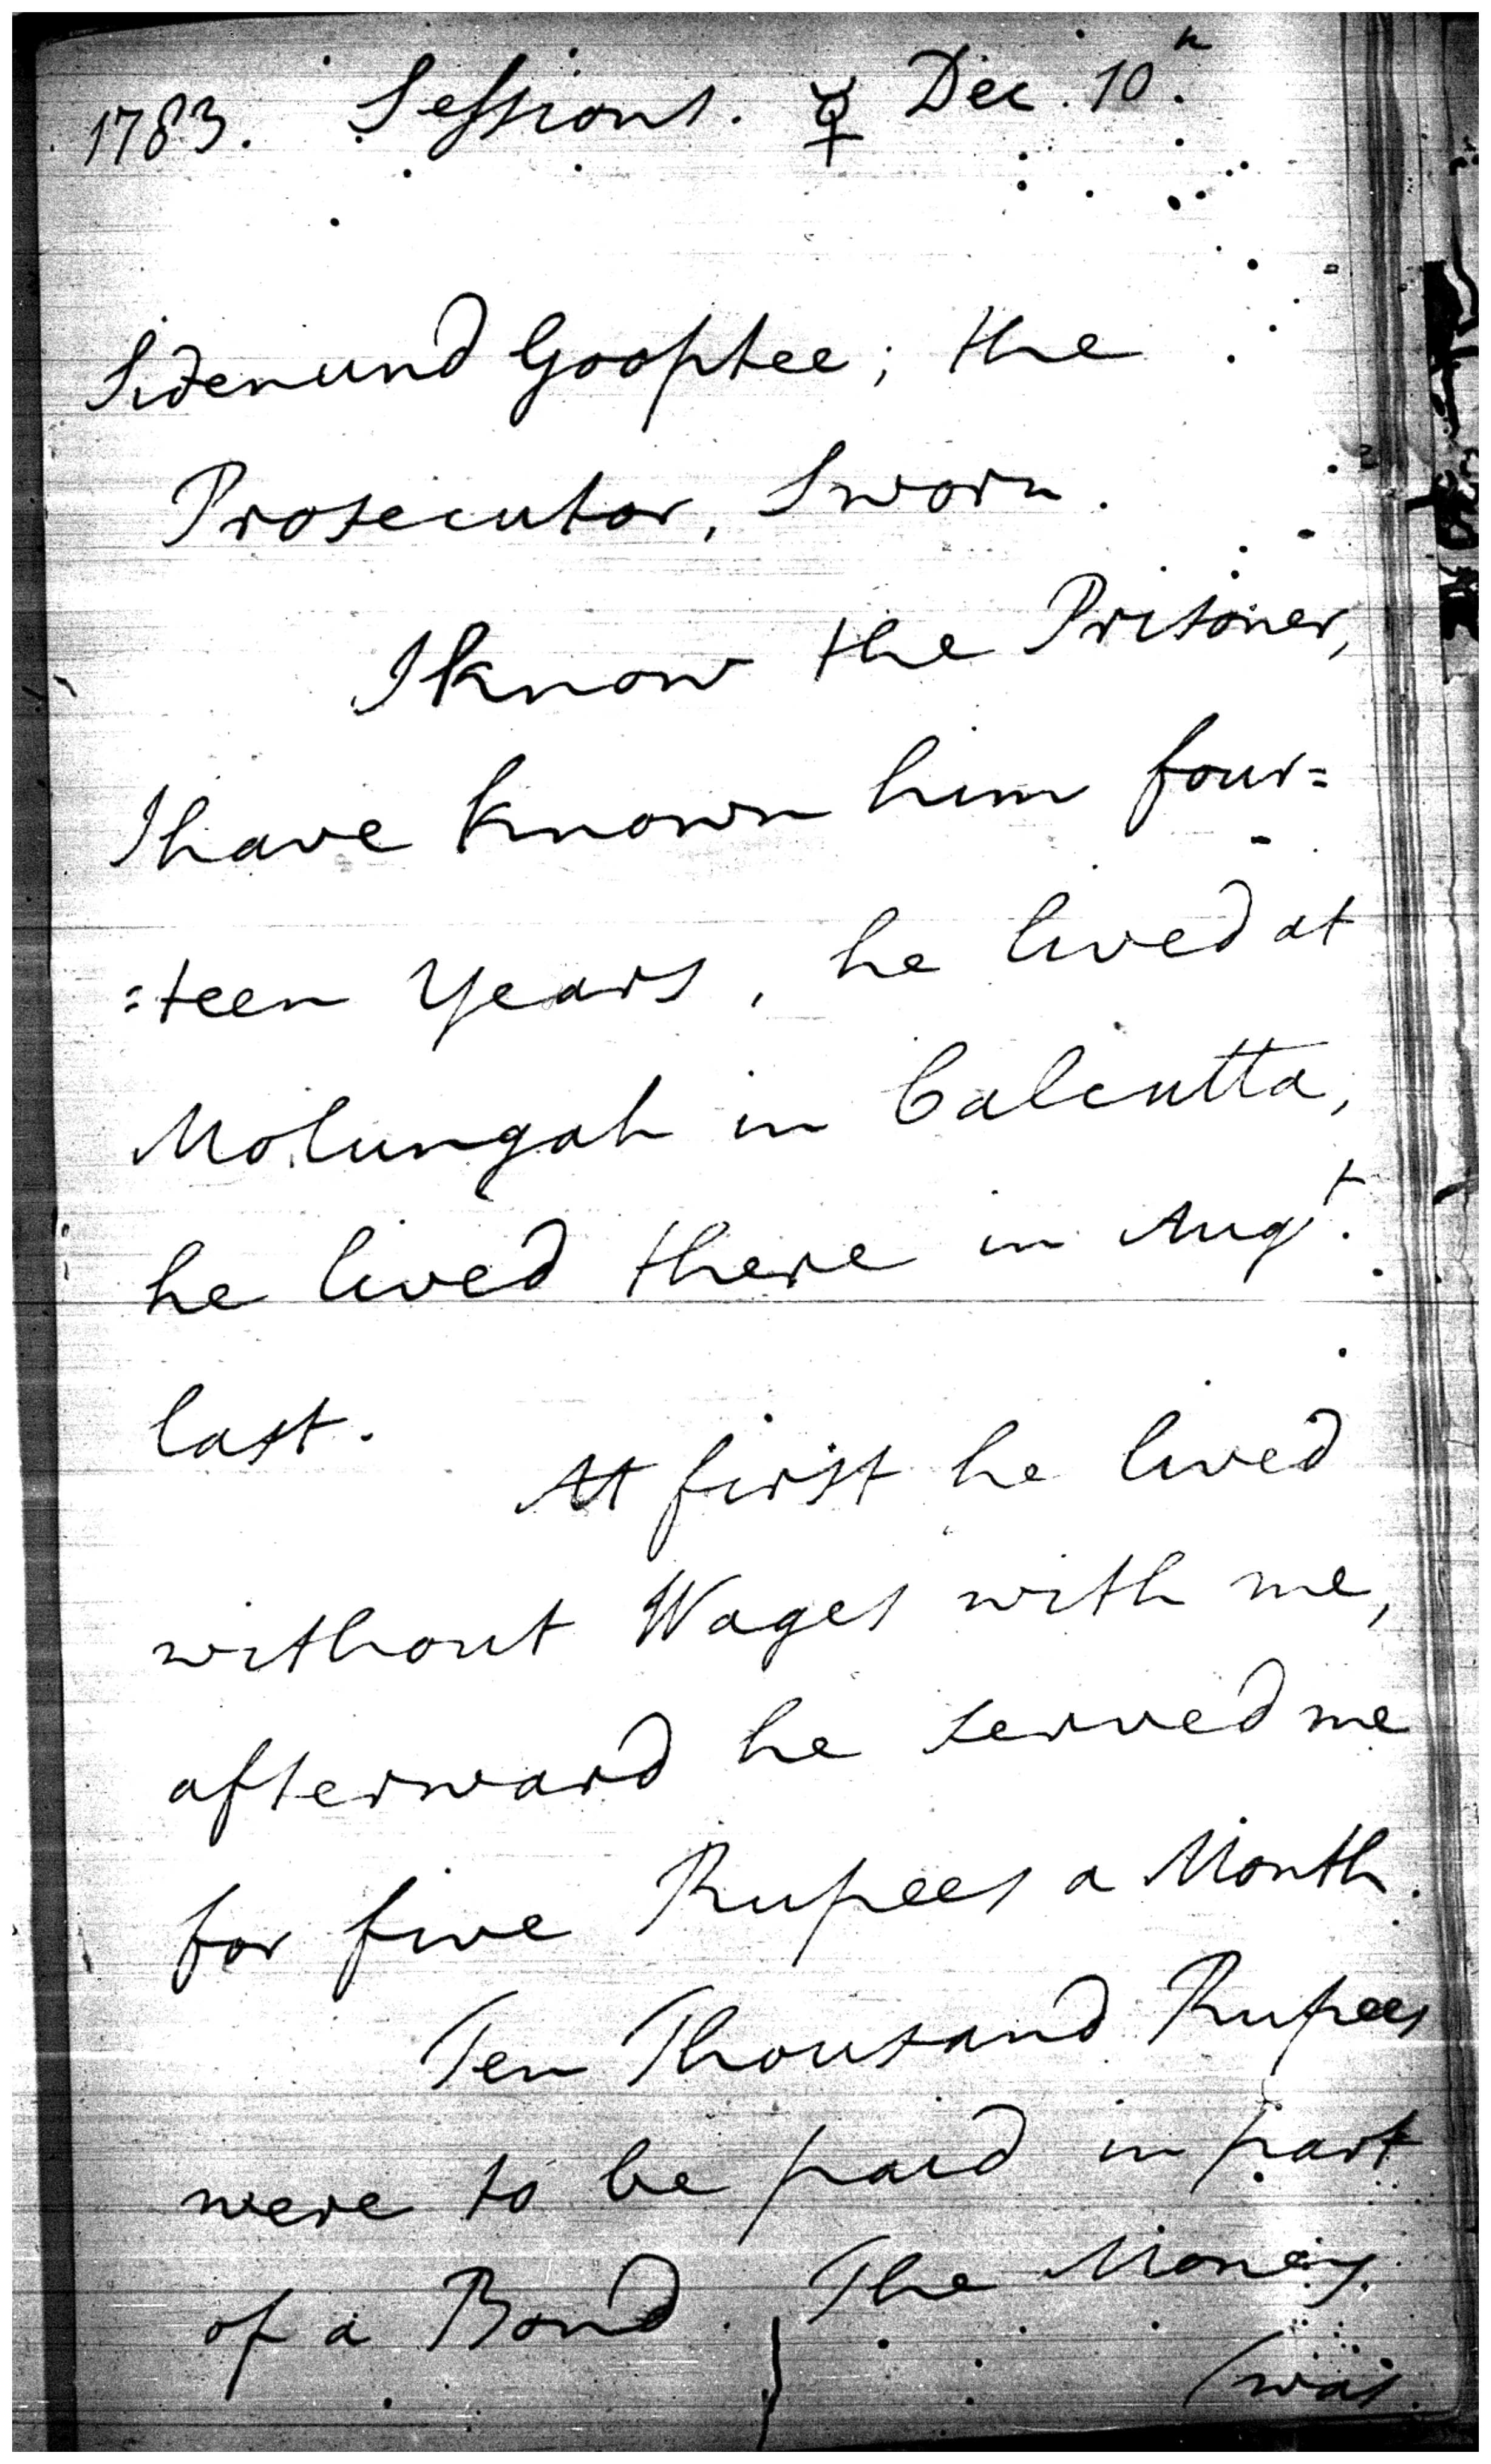 1783. Sessions. ☿ Dec. 10th.
Sidenund Gooptee; the
Prosecutor, Sworn.
I know the Prisoner,
I have known him four=
=teen Years, he lived at
Molungah in Calcutta,
he lived there in Augt.
last.
At first he lived
without Wages with me,
afterward he served me
for five Rupees a Month.
Ten Thousand Rupees
were to be paid in part
of a Bond. The Money
(was